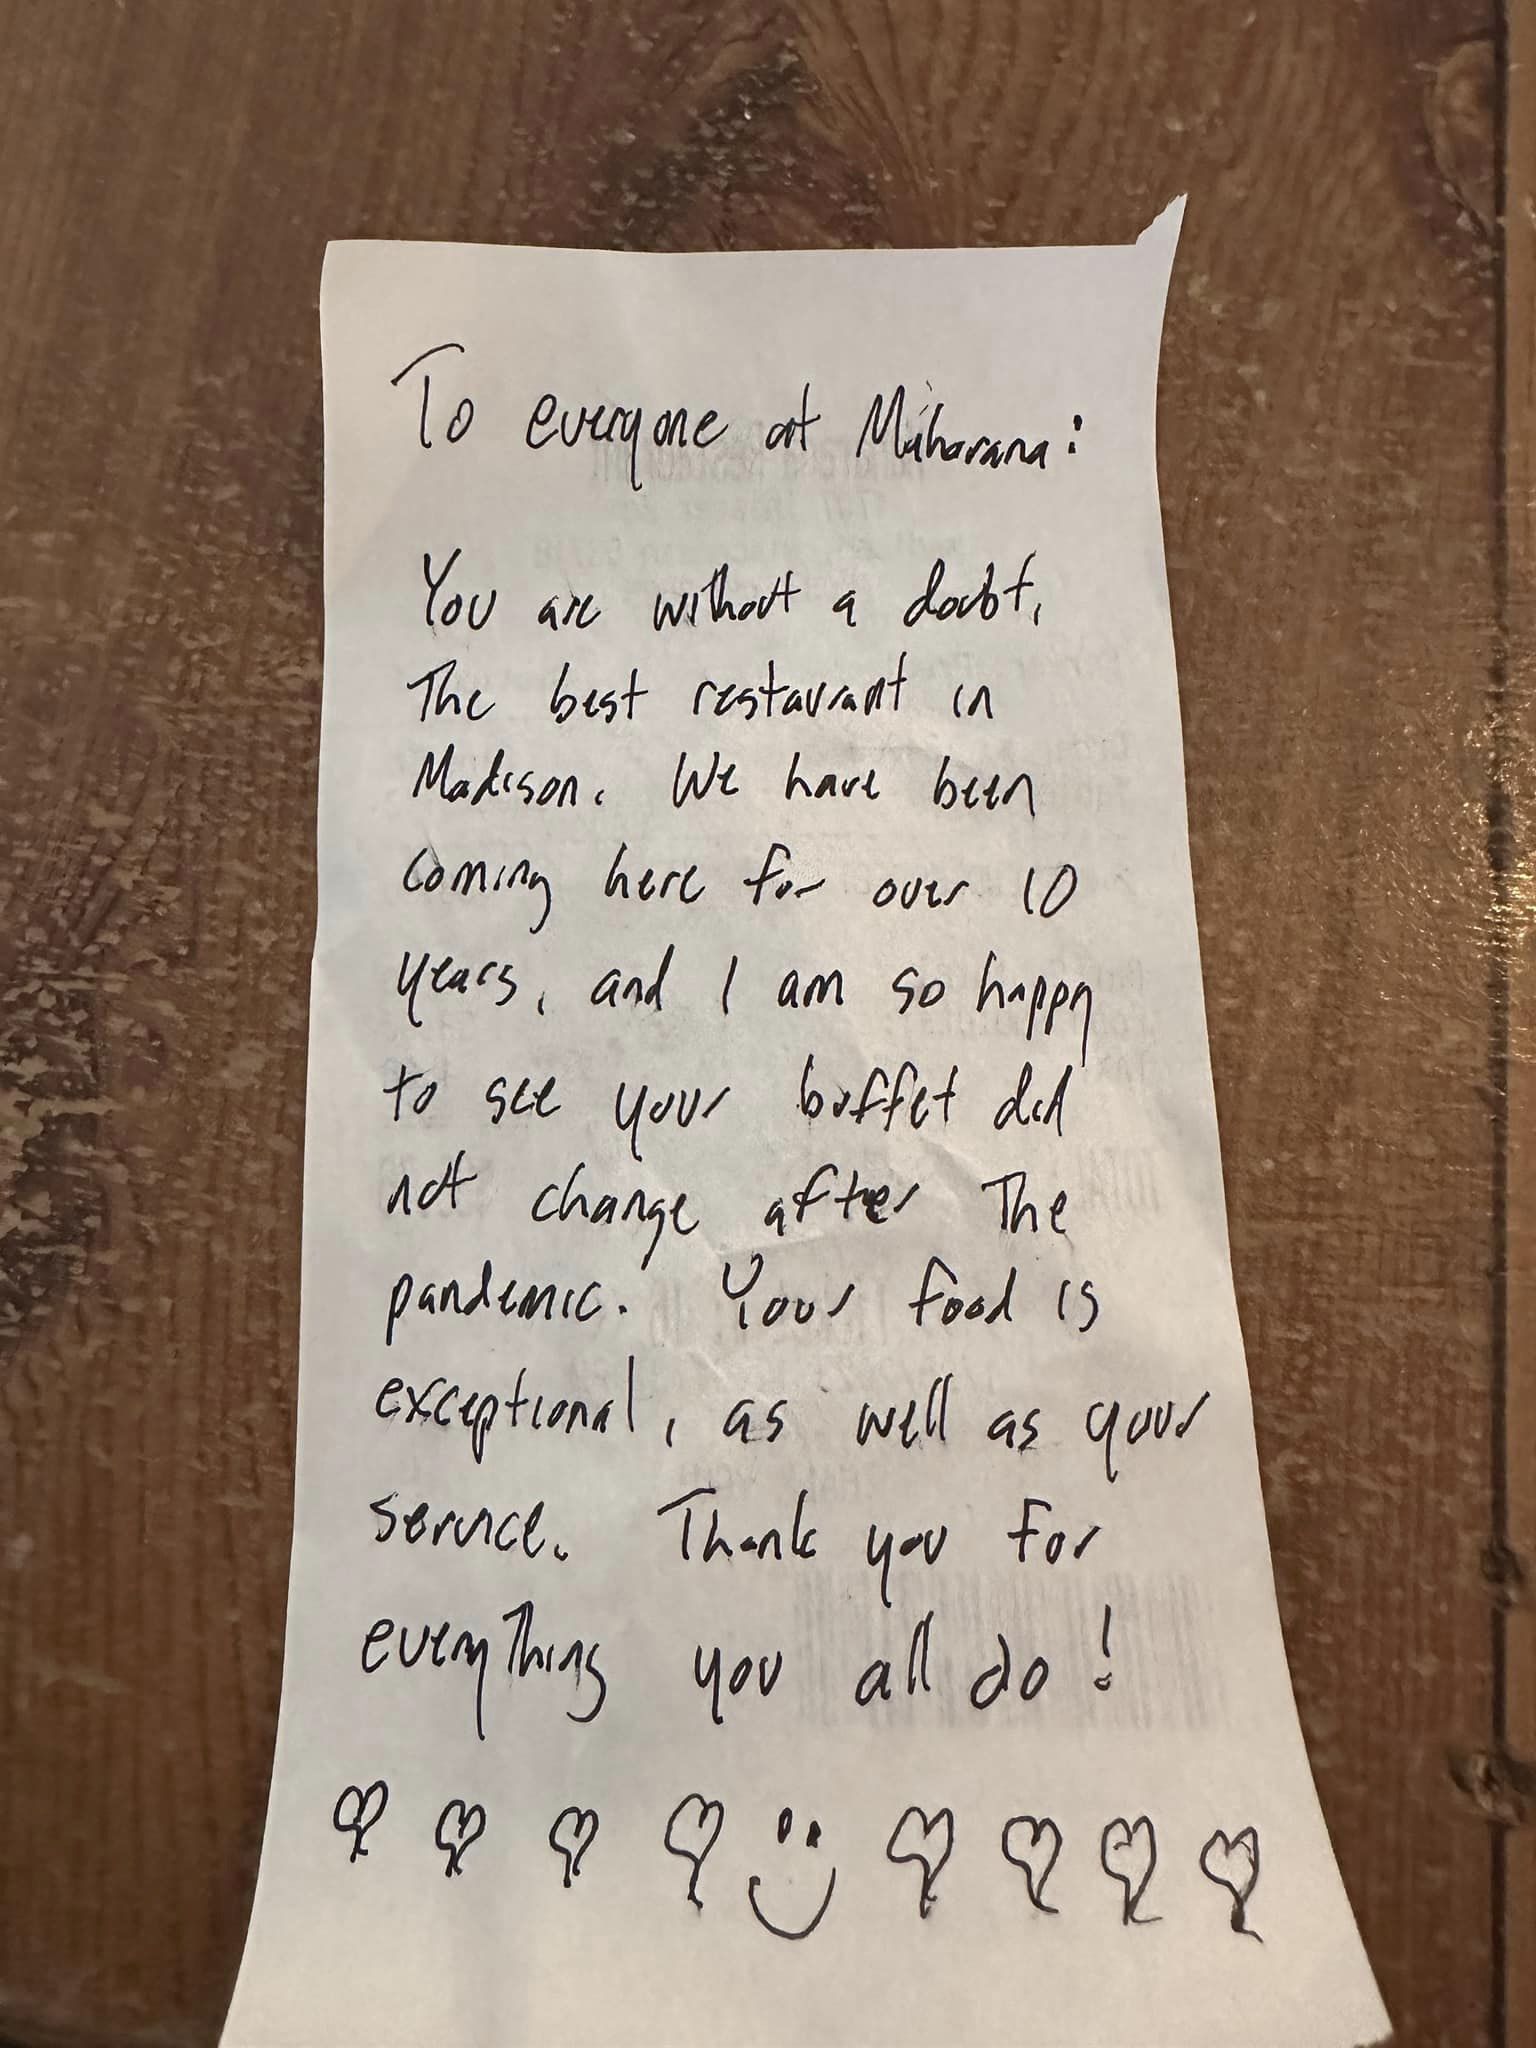 To everyone at Maharana:
You are without a doubt,
the best restaurant in
Madison. We have been
coming here for over 10
years, and I am so happy
to see your buffet did
not change after the
pandemic. Your food is
exceptional, as well as your
service. Thank you for
everything you all do!